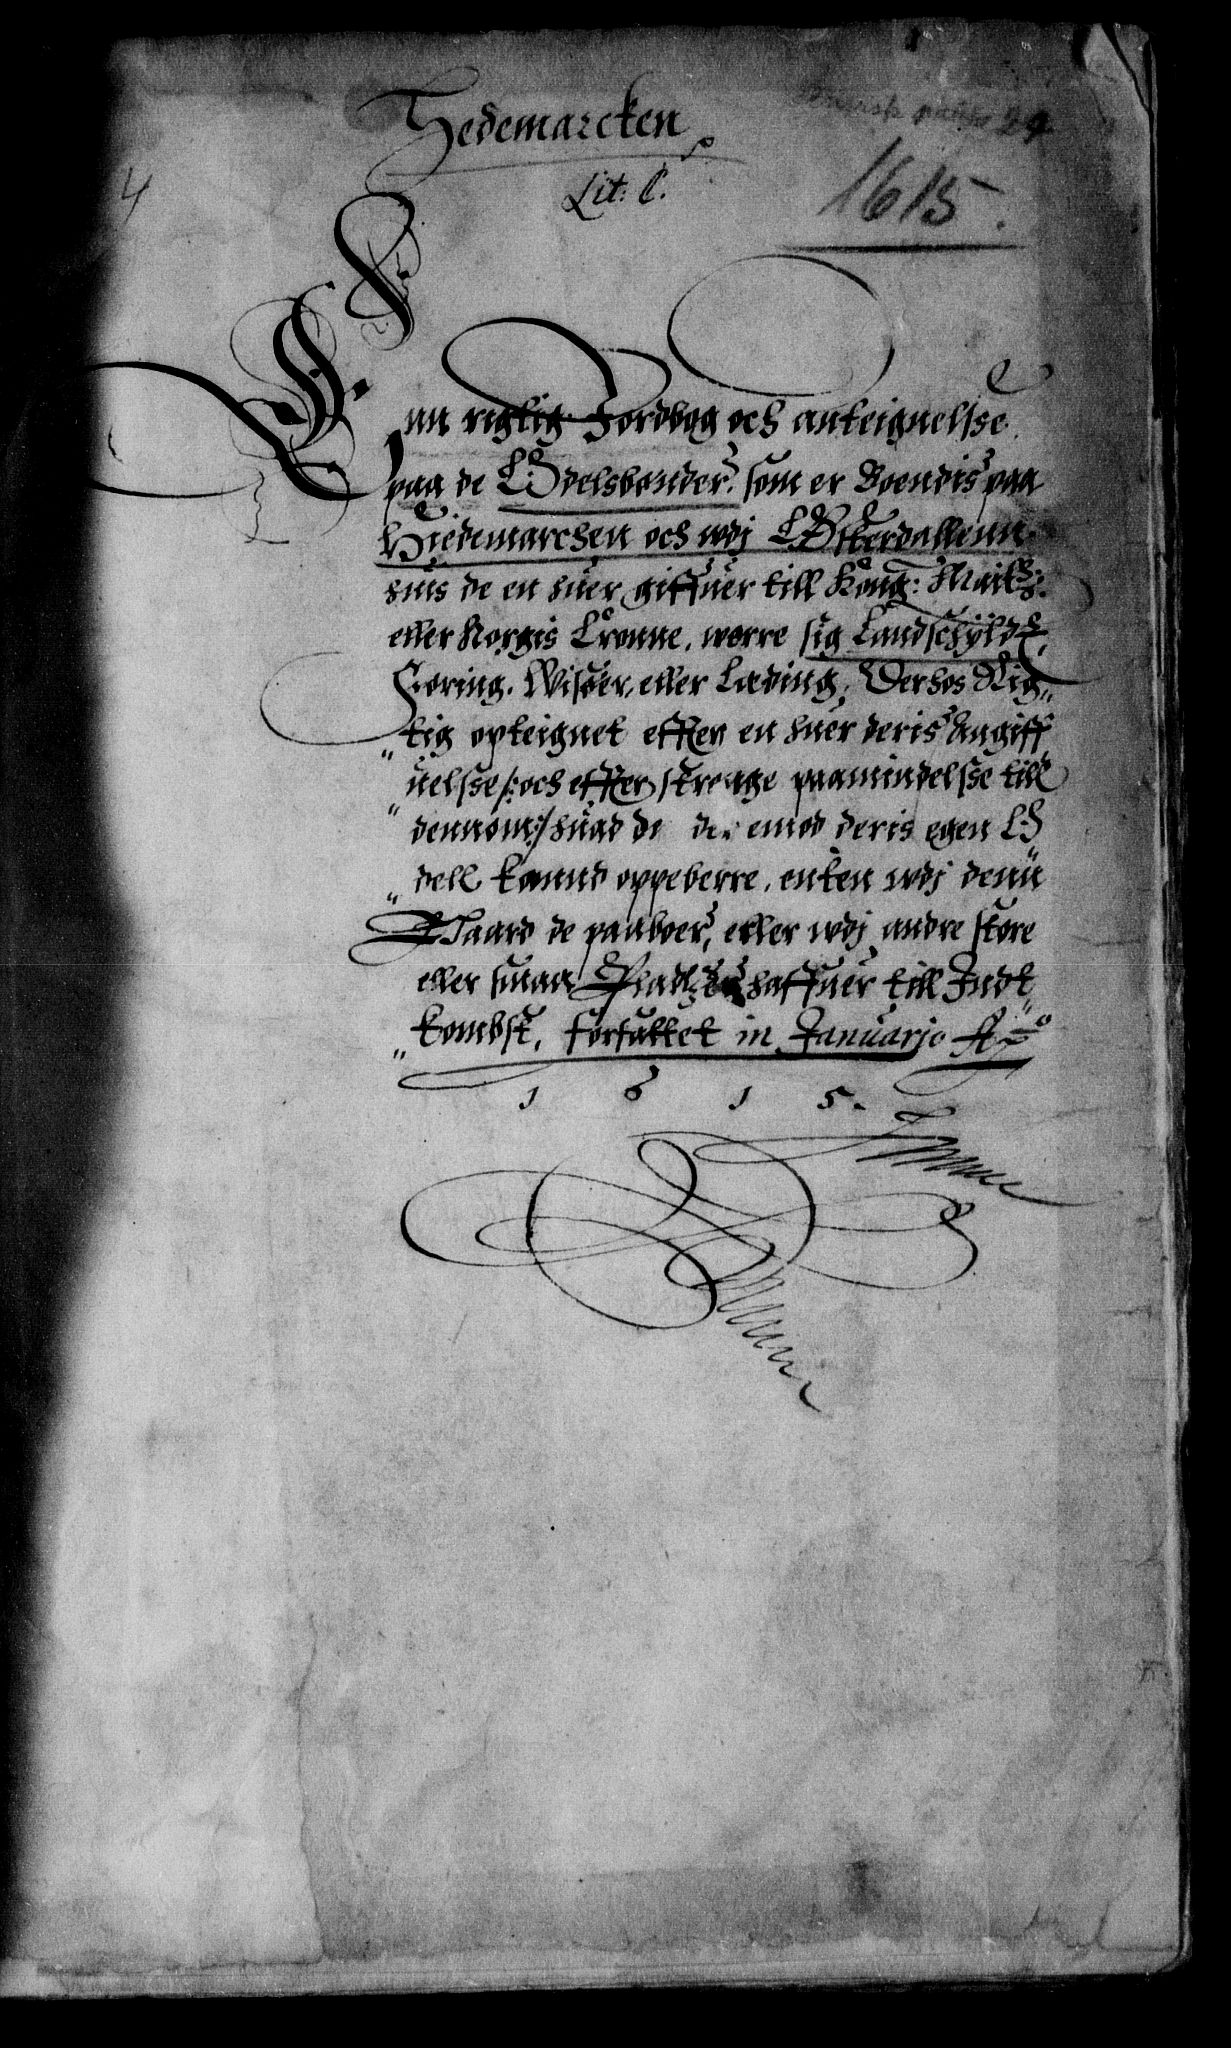 4
Hedemarcken
29
Lit: C.
1615.
Enn rigtig Jordbog och anteignelsse
paa de Odelsbønder, som er Boendis paa
Hiedemarchen och wdj Østerdallenn
huis de en huer giffuer till Kong: Maitz:
eller Norgis Cronne, werre sig Landschyld,
Foring, Wisøer, eller Leding, Derhos Rig„
„tig opteignet effter en huer deris Angiff
„uelsse /: och effter strenge paamindelsse till
„dennom :/ huad de der emod deris egen O„
„dell kannd oppeberre, enten wdj denn
Gaard de paaboer, eller wdj andre støre
eller smaa Pladtzer haffuer till Indt„
„kombst, forfattet in Januario Ao
1 6 1 5.